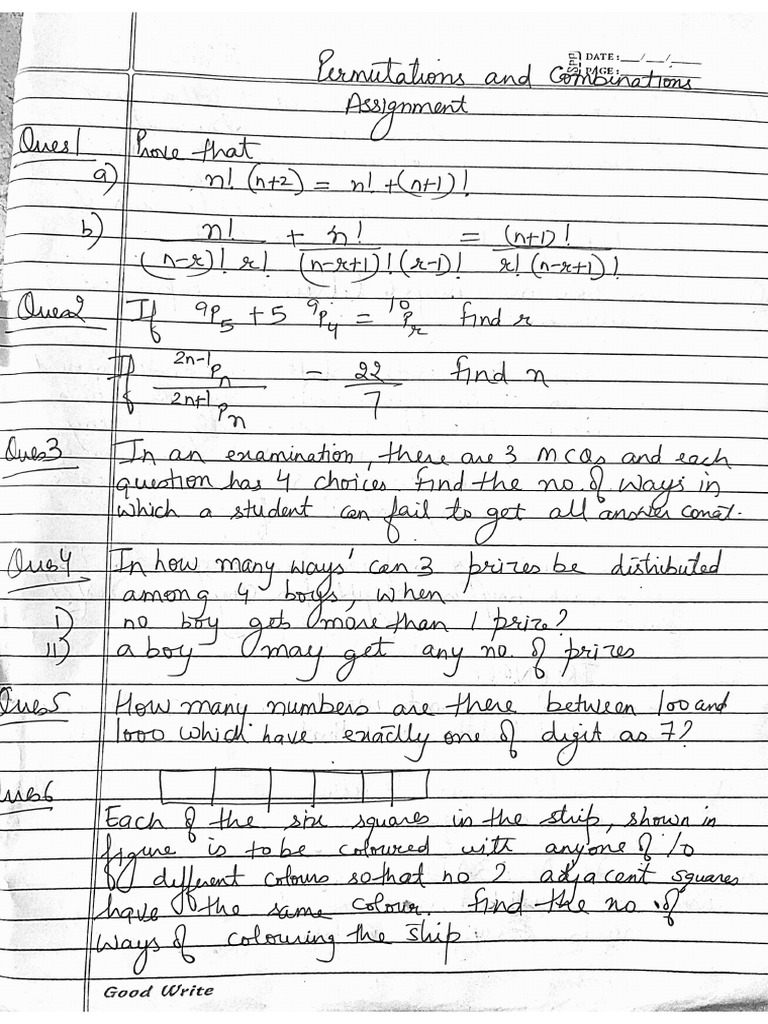 DATE: __/__/__
PAGE:
Permutations and Combinations
Assignment
Ques1 Prove that
a) n! (n+2) = n! + (n+1)!
b) n!/((n-r)! r!) + n!/((n-r+1)! (r-1)!) = (n+1)!/(r! (n-r+1)!)
Ques2 If ⁹P₅ + 5 ⁹P₄ = ¹⁰Pᵣ find r
If ²ⁿ⁻¹Pₙ / ²ⁿ⁺¹Pₙ = 22/7 find n
Ques3 In an examination, there are 3 MCQs and each
question has 4 choices find the no. of ways in
which a student can fail to get all answer
Ques4 In how many ways can 3 prizes be distributed
among 4 boys, when
i) no boy gets more than 1 prize?
ii) a boy may get any no. of prizes
Ques5 How many numbers are there between 100 and
1000 which have exactly one of digit as 7?
ues6
Each of the six squares in the strip, shown in
figure is to be coloured with anyone of 10
different colours so that no 2 adjacent squares
have the same colour. find the no. of
ways of colouring the strip.
Good Write